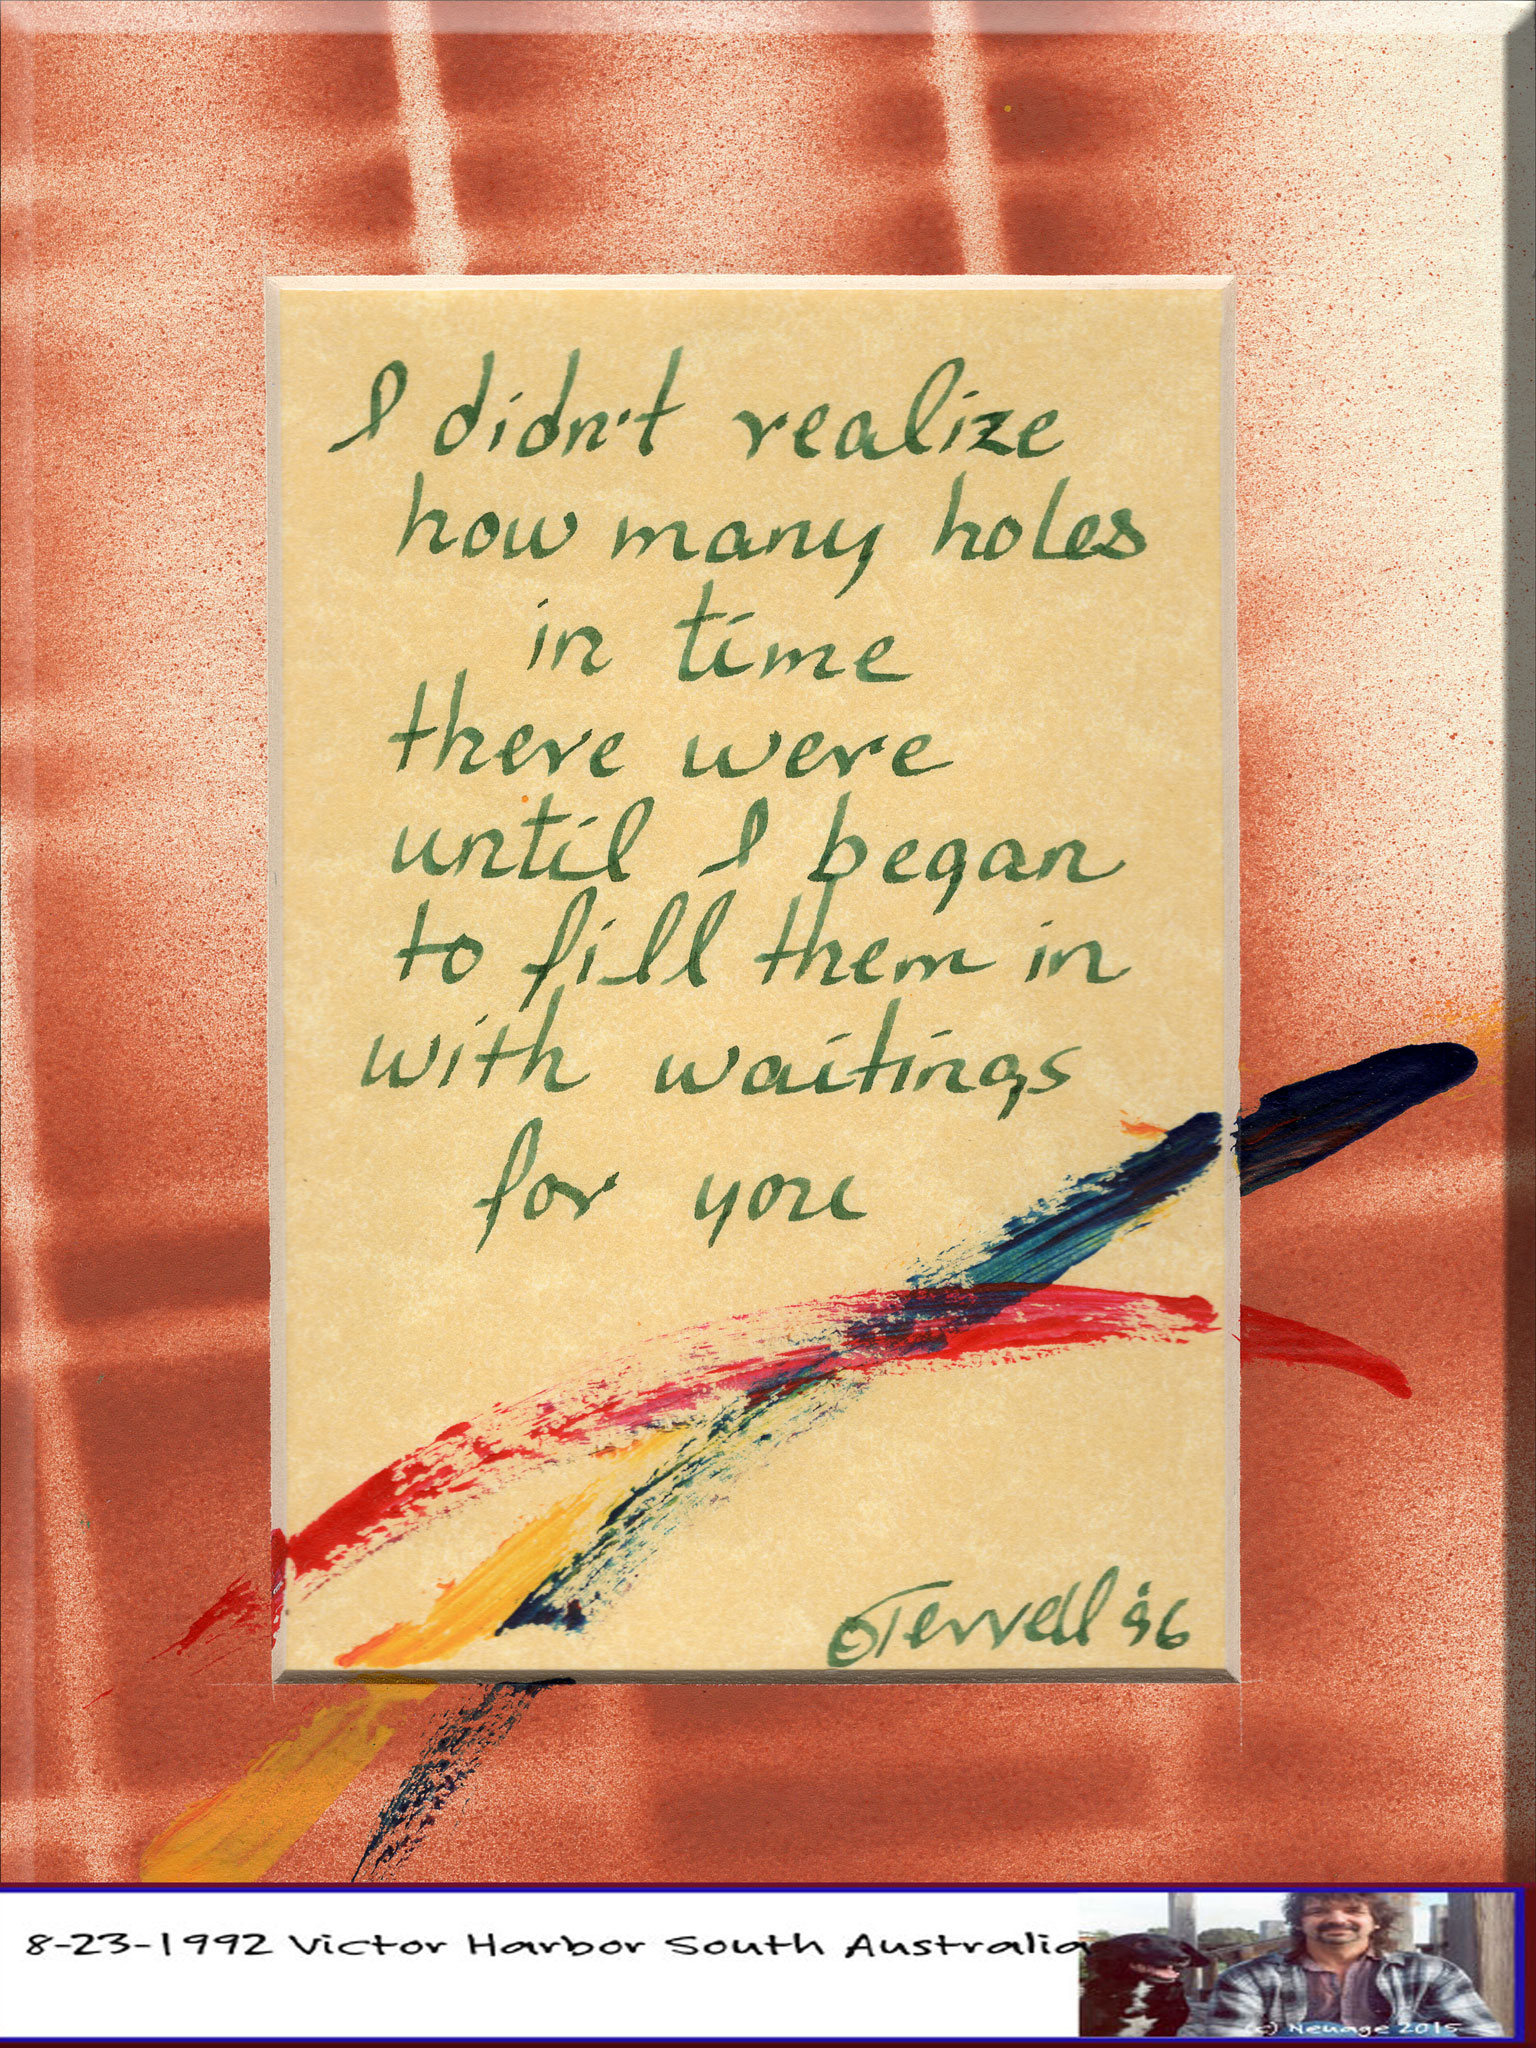 I didn't realize
how many holes
in time
there were
until I began
to fill them in
with waitings
for you
Terrell '96
8-23-1992 Victor Harbor South Australia
(c) Neuage 2015